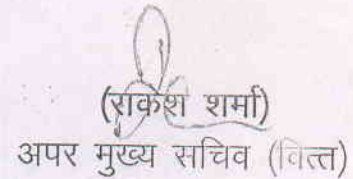 (राकेश शर्मा)
अपर मुख्य सचिव (वित्त)